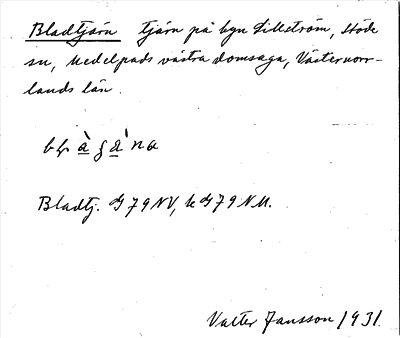 Bladtjärn tjärn på byn Lillström, Stöde
sn, Medelpads västra domsaga, Västernorr-
lands län.
Bladtj. G79NV, k G79NU.
Valter Jansson 1931.